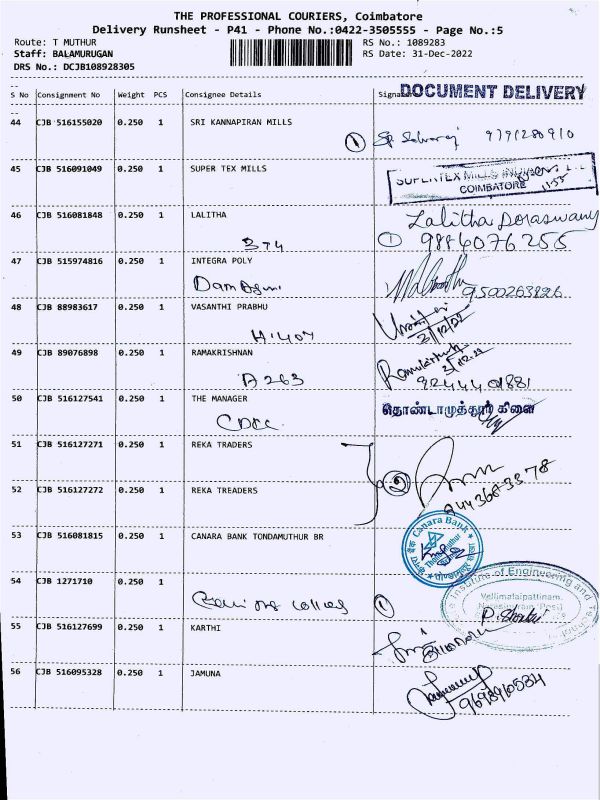 THE PROFESSIONAL COURIERS, Coimbatore
Delivery Runsheet - P41 - Phone No.:0422-3505555 - Page No.:5
Route: T MUTHUR RS No.: 1089283
Staff: BALAMURUGAN RS Date: 31-Dec-2022
DRS No.: DCJB108928305
S No Consignment No Weight PCS Consignee Details DOCUMENT DELIVERY
44 CJB 516155020 0.250 1 SRI KANNAPIRAN MILLS
45 CJB 516091049 0.250 1 SUPER TEX MILLS
SUPERTEX MILLS
COIMBATORE
46 CJB 516081848 0.250 1 LALITHA Lalitha Doraswamy
374 1 9884076255
47 CJB 515974816 0.250 1 INTEGRA POLY
9500263826
48 CJB 88983617 0.250 1 VASANTHI PRABHU
H-407 31/12/22
49 CJB 89076898 0.250 1 RAMAKRISHNAN
A 263
9244401881
50 CJB 516127541 0.250 1 THE MANAGER தொண்டாமுத்தூர் கிளை
51 CJB 516127271 0.250 1 REKA TRADERS
2
52 CJB 516127272 0.250 1 REKA TREADERS
53 CJB 516081815 0.250 1 CANARA BANK TONDAMUTHUR BR
Canara Bank
54 CJB 1271710 0.250 1
Institute of Engineering and
Vellimalaipattinam,
1
55 CJB 516127699 0.250 1 KARTHI
56 CJB 516095328 0.250 1 JAMUNA